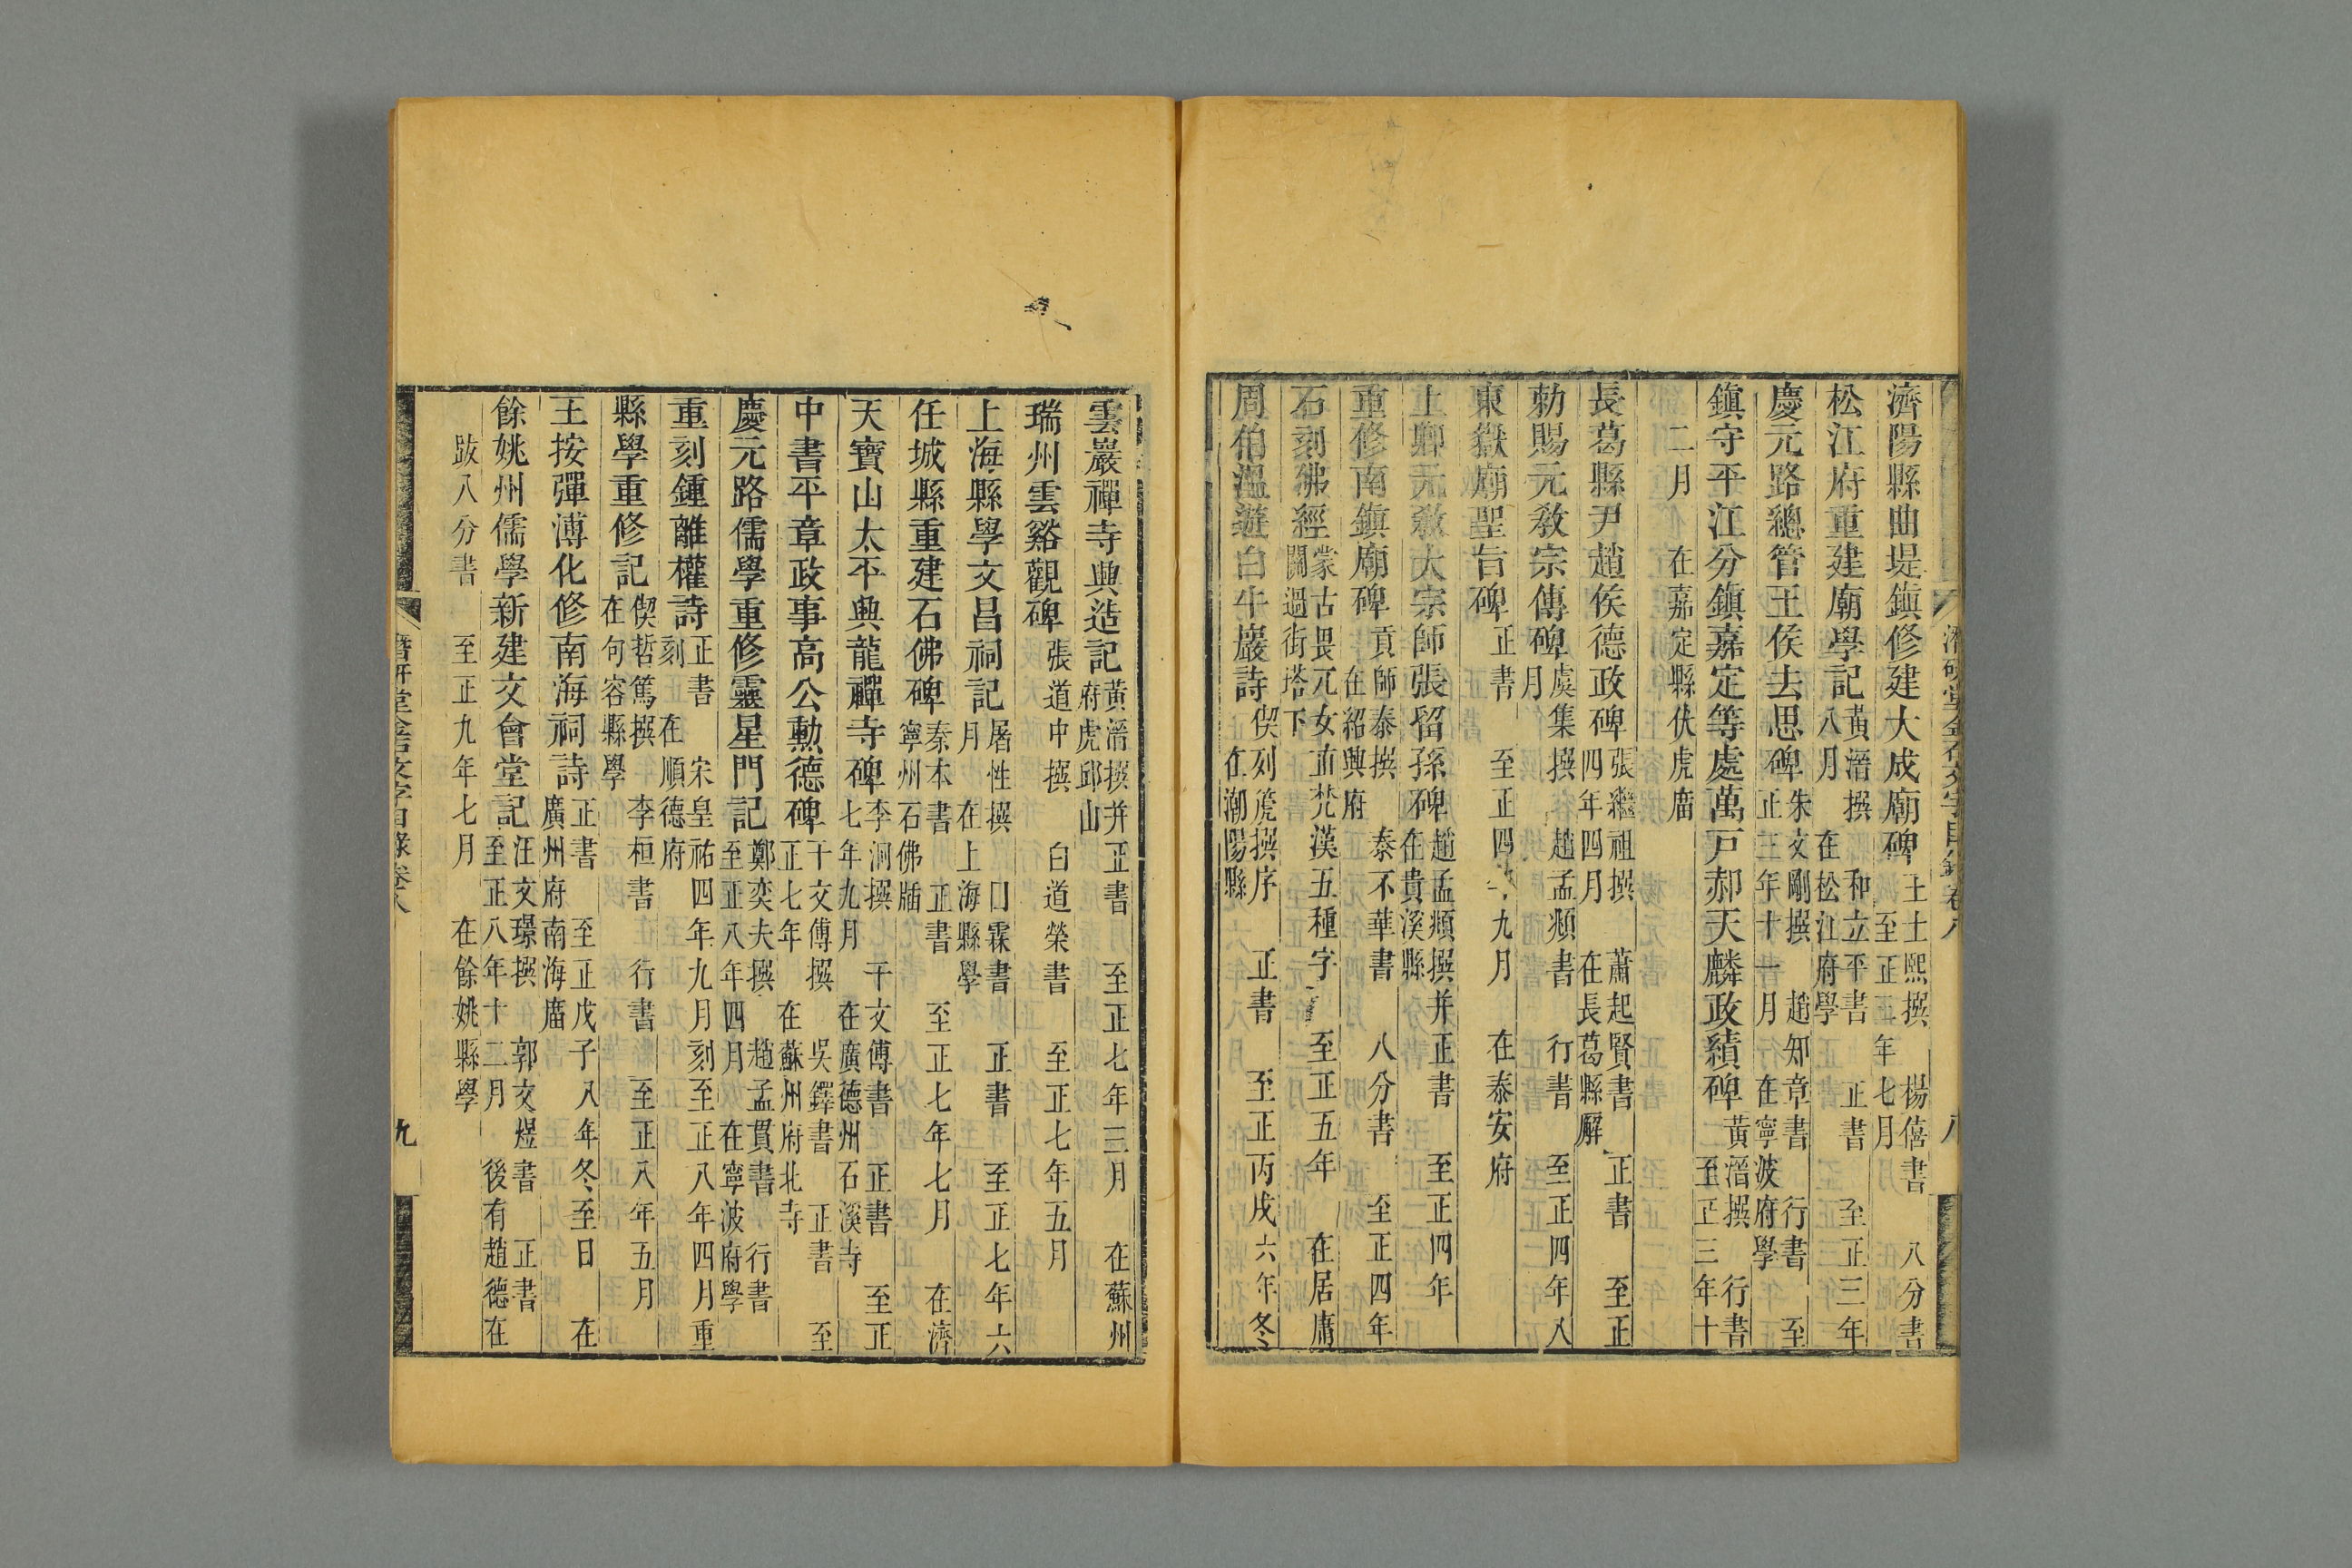 濟陽縣曲堤鎮修建大成廟碑 王士熙撰 楊僖書 八分書 至正二年七月
松江府重建廟學記 黃溍撰 和立平書 正書 至正三年八月 在松江府學
慶元路總管王侯去思碑 朱文剛撰 趙知章書 行書 至正三年十一月 在寧波府學
鎮守平江分鎮嘉定等處萬戸郝天麟政績碑 黃溍撰 行書 至正三年十
二月 在嘉定縣伏虎廟
長葛縣尹趙侯德政碑 張繼祖撰 蕭起賢書 正書 至正四年四月 在長葛縣廨
勅賜元敎宗傳碑 虞集撰 趙孟頫書 行書 至正四年八月
東嶽廟聖旨碑 正書 至正四年九月 在泰安府
上卿元敎大宗師張留孫碑 趙孟頫撰并正書 至正四年 在貴溪縣
重修南鎮廟碑 貢師泰撰 泰不華書 八分書 至正四年 在紹興府
石刻佛經 蒙古畏兀女直梵漢五種字 至正五年 在居庸關過街塔下
周伯溫遊白牛巖詩 偰列箎撰序 正書 至正丙戌六年冬 在潮陽縣
潛研堂金石文字目錄卷八 八
雲巖禪寺興造記 黃溍撰并正書 至正七年三月 在蘇州府虎邱山
瑞州雲谿觀碑 張道中撰 白道榮書 至正七年五月
上海縣學文昌祠記 屠性撰 口霖書 正書 至正七年六月 在上海縣學
任城縣重建石佛碑 秦本書 正書 至正七年七月 在濟寧州石佛牐
天寶山太平興龍禪寺碑 李泂撰 干文傳書 正書 至正七年九月 在廣德州石溪寺
中書平章政事高公勳德碑 干文傳撰 吳鐸書 正書 至正七年 在蘇州府北寺
慶元路儒學重修靈星門記 鄭奕夫撰 趙孟貫書 行書 至正八年四月 在寧波府學
重刻鍾離權詩 正書 宋皇祐四年九月刻至正八年四月重刻 在順德府
縣學重修記 偰哲篤撰 李桓書 行書 至正八年五月 在句容縣學
王按彈溥化修南海祠詩 正書 至正戊子八年冬至日 在廣州府南海廟
餘姚州儒學新建交會堂記 汪文璟撰 郭文煜書 正書 至正八年十二月 後有趙德在
跋八分書 至正九年七月 在餘姚縣學
潛研堂金石文字目錄卷八 九